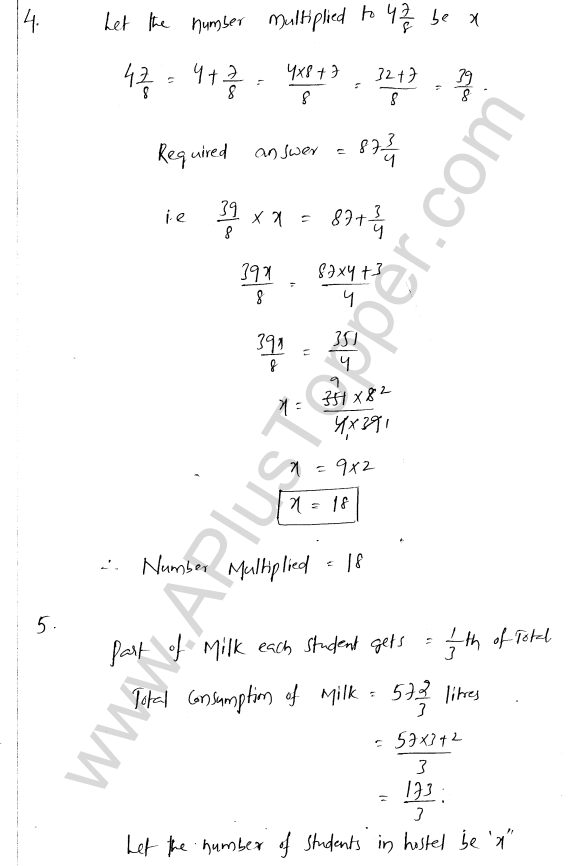 4. Let the number multiplied to 4 7/8 be x
4 7/8 = 4 + 7/8 = (4×8+7)/8 = (32+7)/8 = 39/8 .
Required answer = 87 3/4
i.e 39/8 × x = 87 + 3/4
39x/8 = (87×4+3)/4
39x/8 = 351/4
x = (351 × 8)/(4×39) 9 2 1 1
x = 9×2
x = 18
∴ Number Multiplied = 18
5. Part of Milk each student gets = 1/3 th of Total
Total Consumption of Milk = 57 2/3 litres
= (57×3+2)/3
= 173/3 .
Let the number of students in hostel be 'x"
www.APlusTopper.com